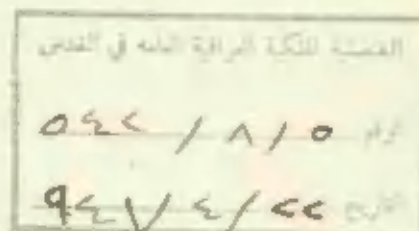 القنصلية الملكية العراقية العامه في القدس
الرقم ٥ / ٨ / ٥٤٢
التاريخ ٢٢ / ٤ / ٩٤٧